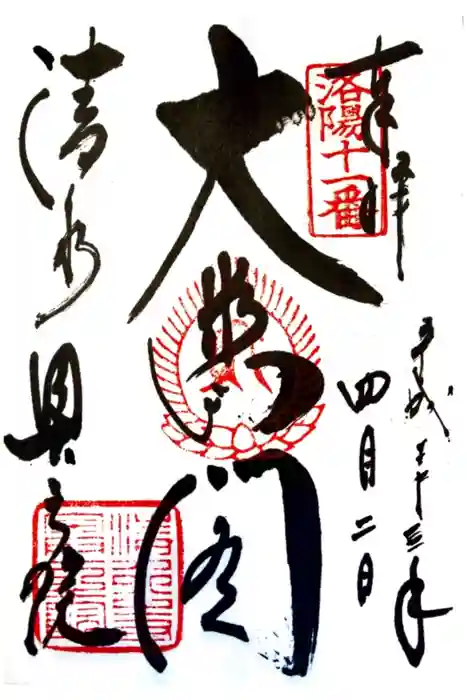 奉拝
洛陽十一番
平成二十三年
四月二日
大悲閣
清水奥之院